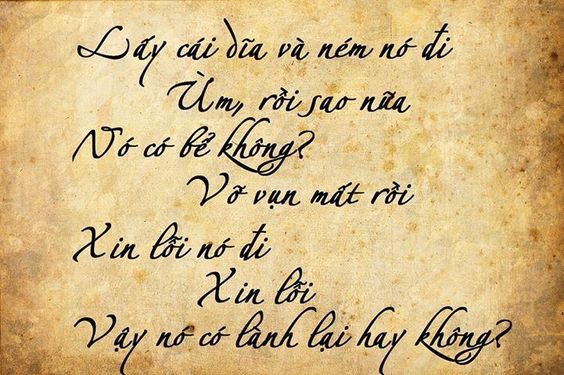 Lấy cái dĩa và ném nó đi
Ừm, rồi sao nữa
Nó có bể không?
Vỡ vụn mất rồi
Xin lỗi nó đi
Xin lỗi
Vậy nó có lành lại hay không?